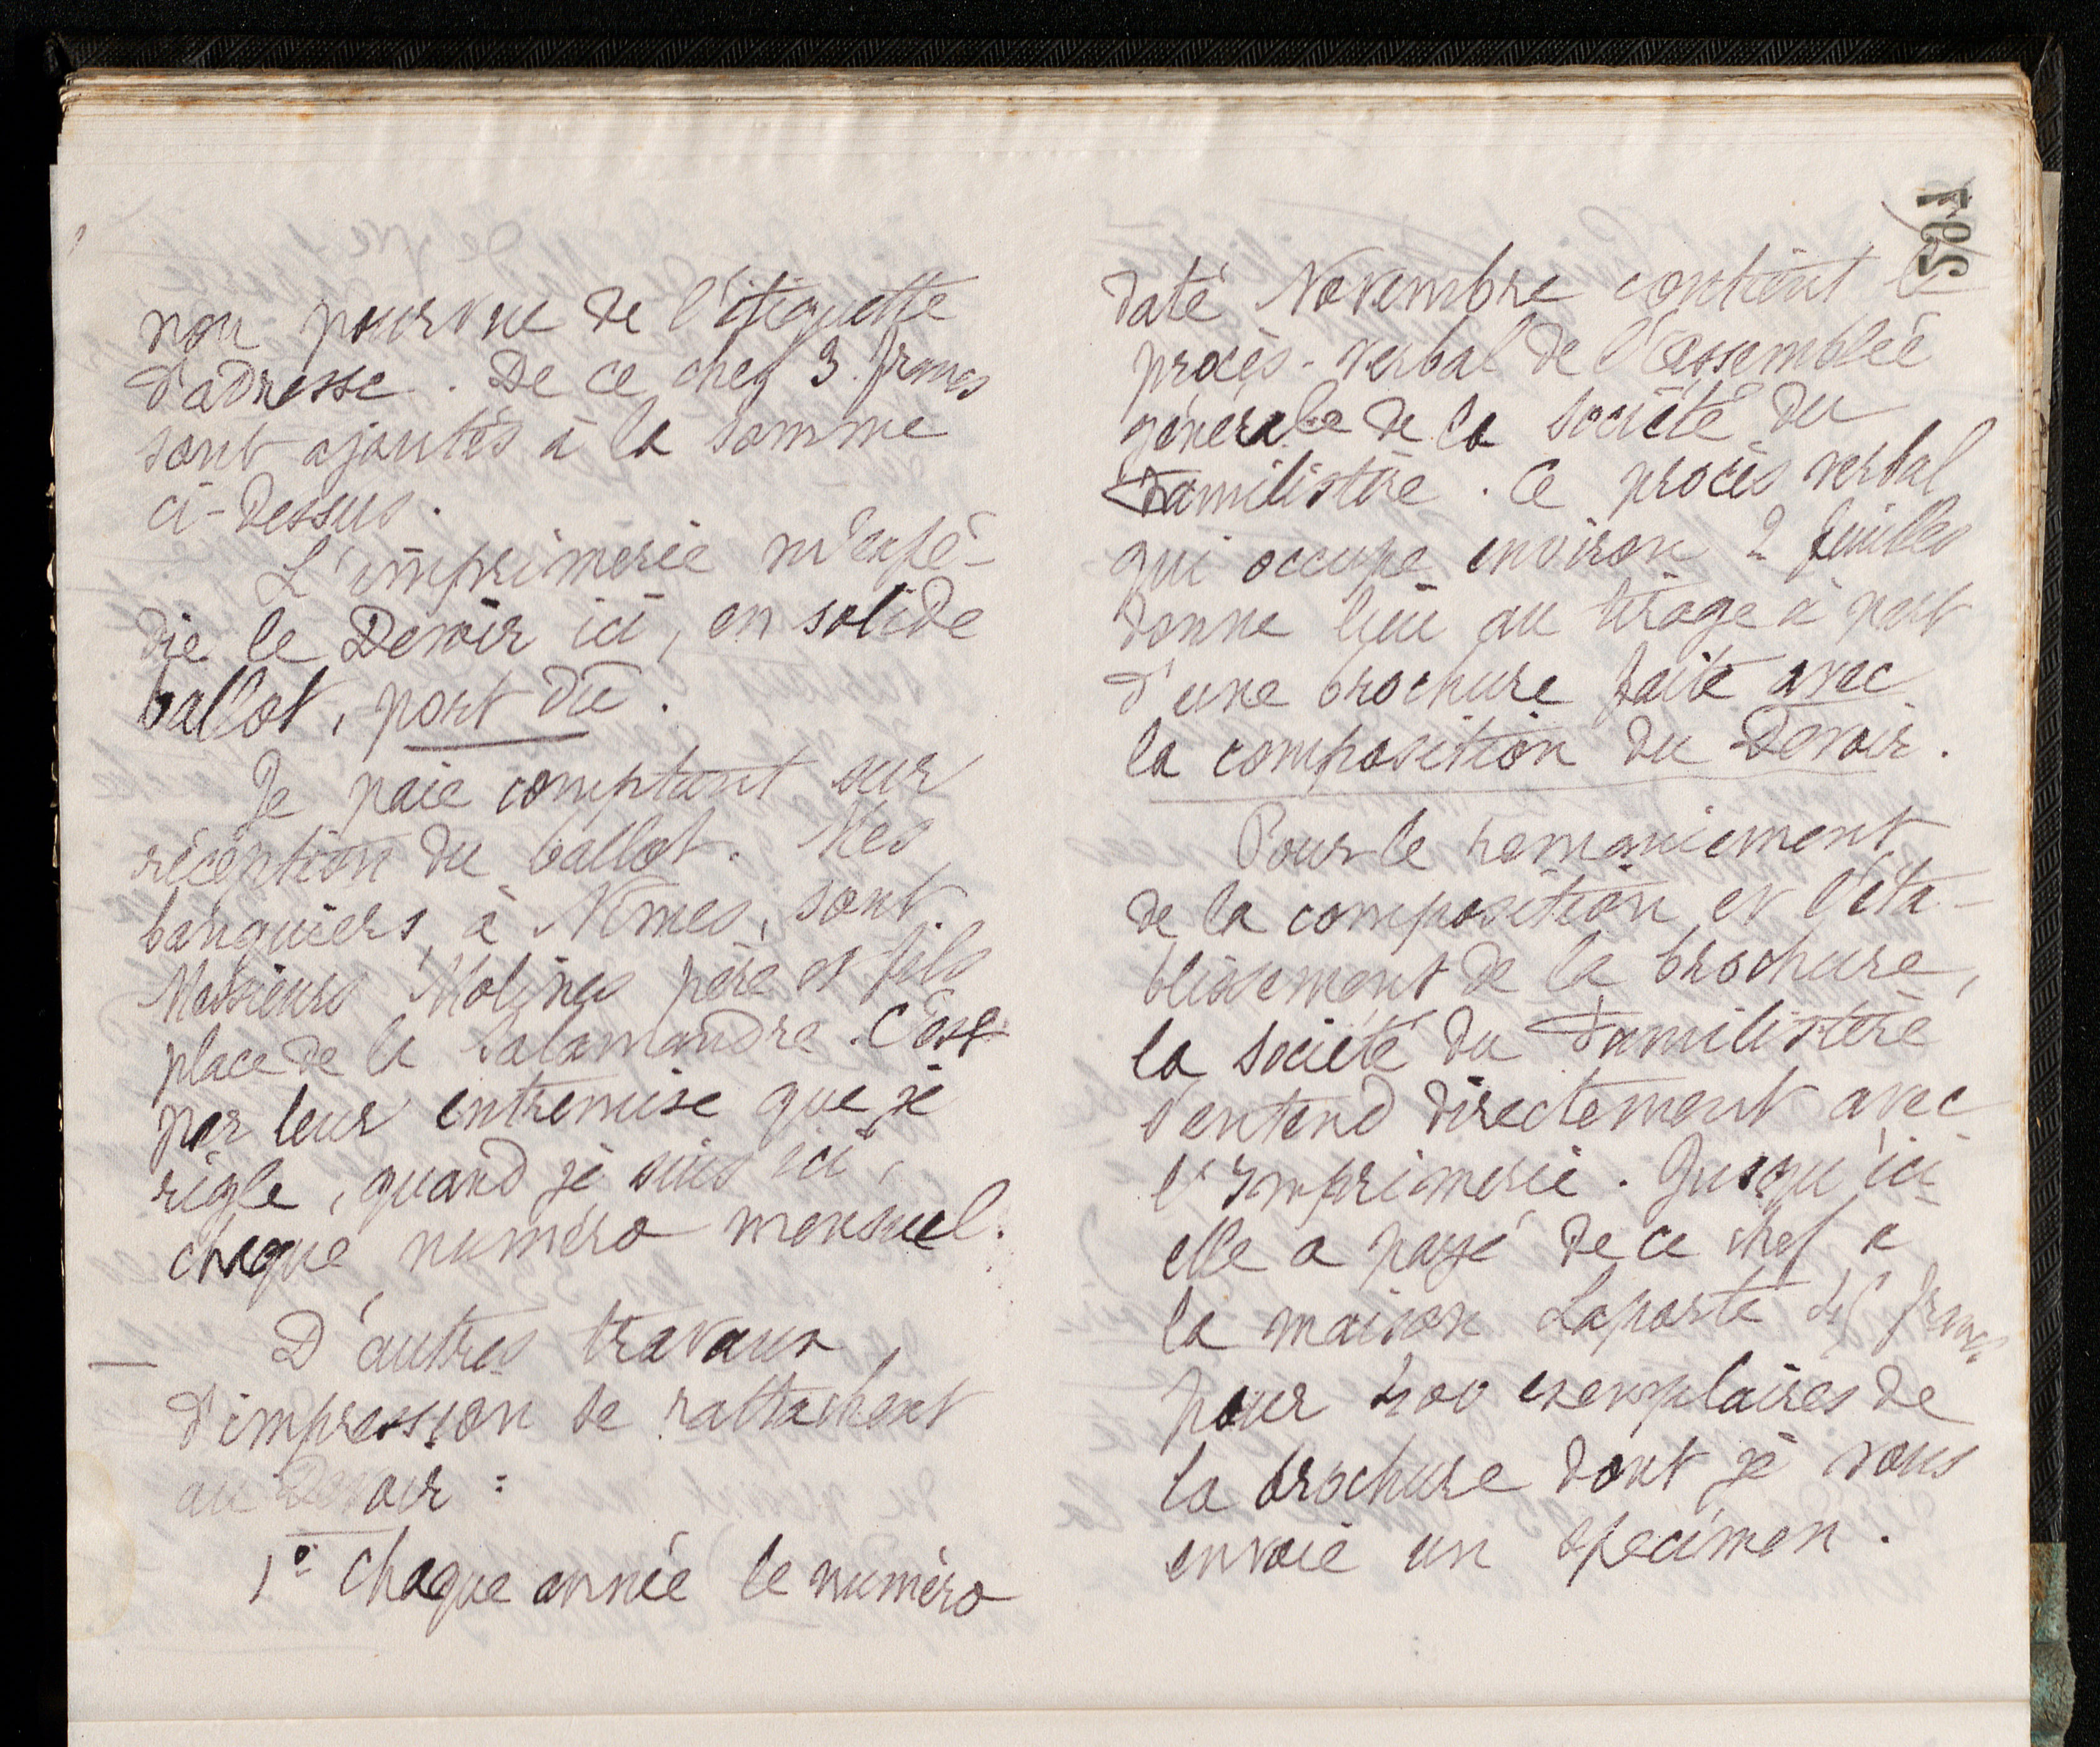 non pourvue de l'étiquette
d'adresse. De ce chef 3 francs
sont ajoutés à la somme
ci-dessus.
L'imprimerie m'expé-
die le Devoir ici, en solide
ballot, port dû.
Je paie comptant sur
réception du ballot. Mes
banquiers, à Nîmes, sont
Messieurs Molines père et fils
place de la Salamandre. C'est
par leur entremise que je
règle, quand je suis ici,
chaque numéro mensuel.
D'autres travaux
d'impression se rattachent
au Devoir :
1° Chaque année le numéro
501
daté Novembre contient le
procès-verbal de l'assemblée
générale de la société du
Familistère. Ce procès verbal
qui occupe environ 2 feuilles
donne lieu au tirage à part
d'une brochure faite avec
la composition du Devoir.
Pour le remaniement
de la composition et l'éta-
blissement de la brochure,
la société du Familistère
s'entend directement avec
l'Imprimerie. Jusqu'ici
elle a payé de ce chef à
la maison Laporte francs
pour 400 exemplaires de
la brochure dont je vous
envoie un specimen.